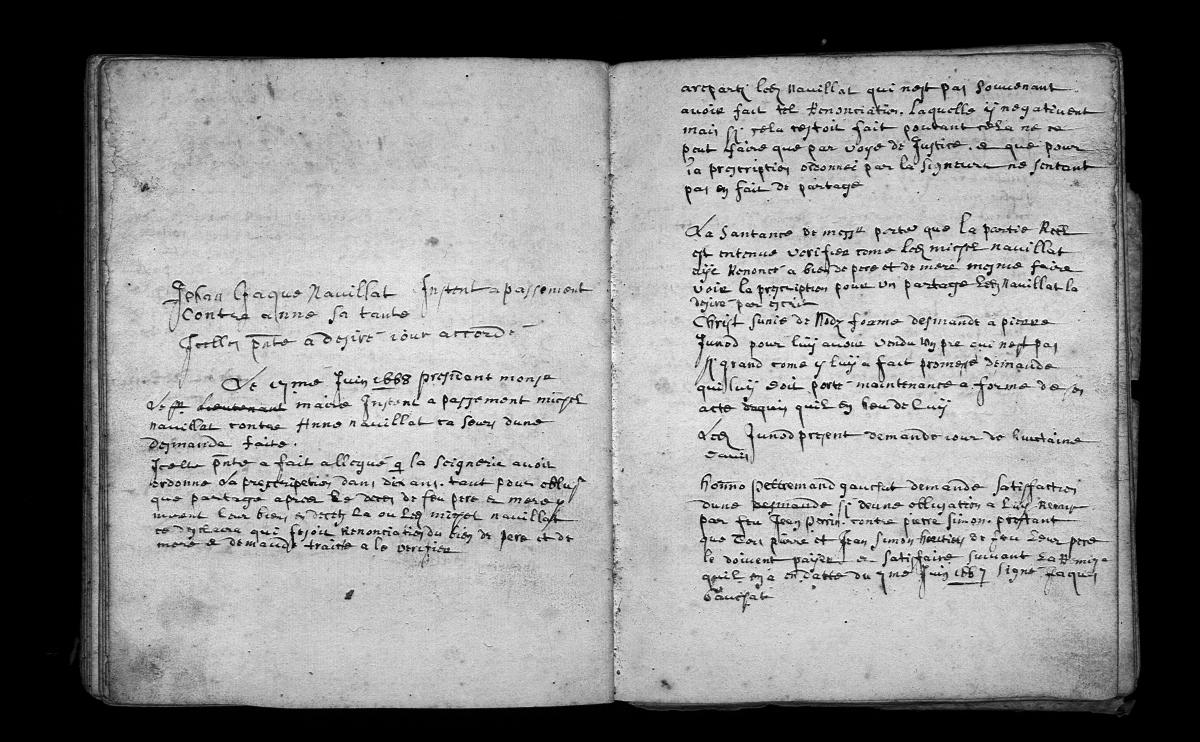 Jehan Jaque Navillat Instent a passement
Contre anne sa tante
Icelle pnte a desiré iour accordé
Le me Juin 1668 presidant monsr
Lefft lieutenant maire Instent a passement michel
navillat contre Anne navillat sa seur dune
desmande faite.
Icelle pnte a fait allegué q la Seignerie avoir
ordonne la prescripetion dans dix ans. tant pour
que partage apres le deces de feu pere et mere
leur bien La ou Led michel navillat
ce declaire qui fesoit Renonciation du bien de pere et de
mere et demande traitte a le verifier
Led Navillat qui nest pas souvenant
avoir fait tel Renonciation. Laquelle y negativent
mais sy cela estoit fait poutant cela ne ce
peut faire que par voye de Justice. et que pour
la prescription ordonnee par la signeurie ne sentant
pas en fait de partage
La Santance de messrs porte que la partie Reé
est entenue verifier come Led michel navillat
aÿe Renoncé a bien de pere et de mere mesme faire
voir la prescription pour un partage Led Navillat la
desire par escrit
Christ sunie de Nodz forme desmande a pierre
Junod pour luy avoir vendu un pre qui nest pas
sy grand come y luy a fait promese demande
qui luy doit porté maintenance a forme de son
acte daquis quil en heu de luy
Led Junod present demande iour de huictaine
davis
honno petremand gauchat demande satisfaction
dune desmande sy devne obligation a luy Remise
par feu Jean perrin. contre pierre simon. presant
que Dou pierre et Jean Simon heritiers de feu Leur pere
le doivent paÿer et satisfaire suivant la Remise
quil en a en datte du me Juin 1667 signé Jaques
Gauchat